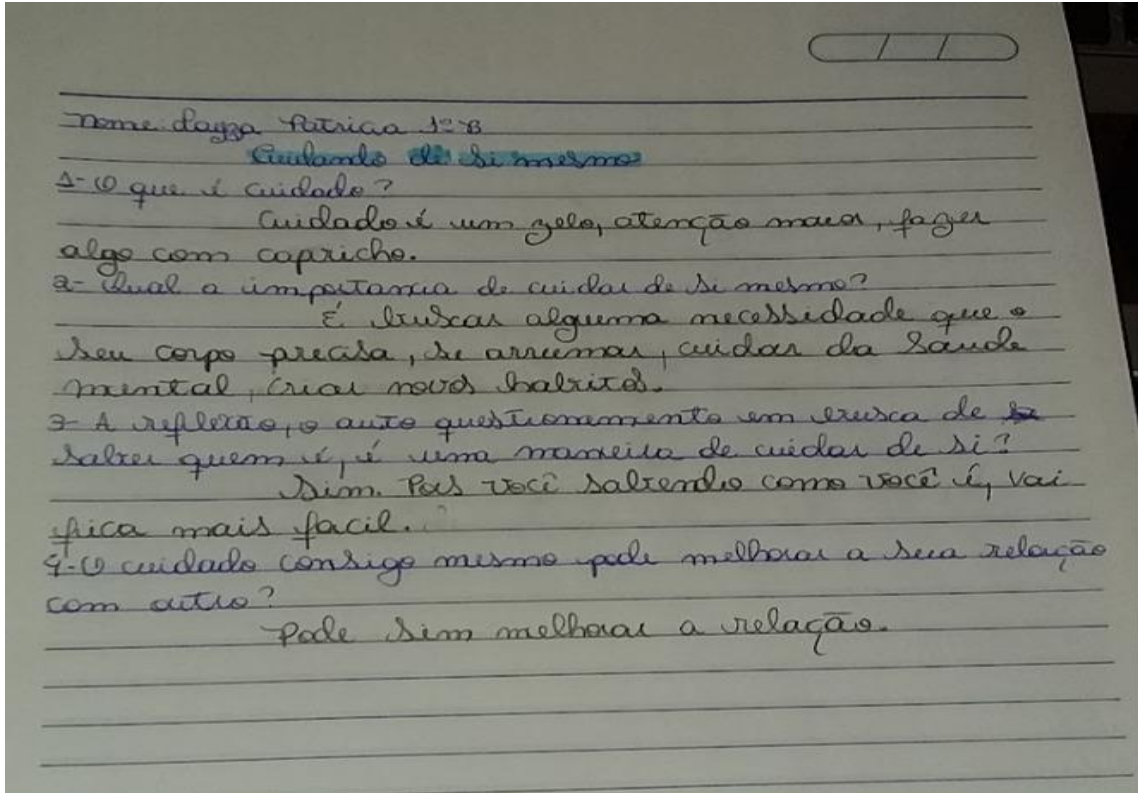 nome: Dayza Patricia 1º B
Cuidando de si mesmo
1- O que é cuidado?
Cuidado é um zelo, atenção maior, fazer
algo com capricho.
2- Qual a importancia de cuidar de si mesmo?
É buscar alguma necessidade que o
seu corpo precisa, se arrumar, cuidar da saude
mental, criar novos habitos.
3- A reflexão, o auto questionamento em busca de
saber quem é, é uma maneira de cuidar de si?
Sim. Pois você sabendo como você é, vai
fica mais facil.
4- O cuidado consigo mesmo pode melhorar a sua relação
com outro?
Pode sim melhorar a relação.